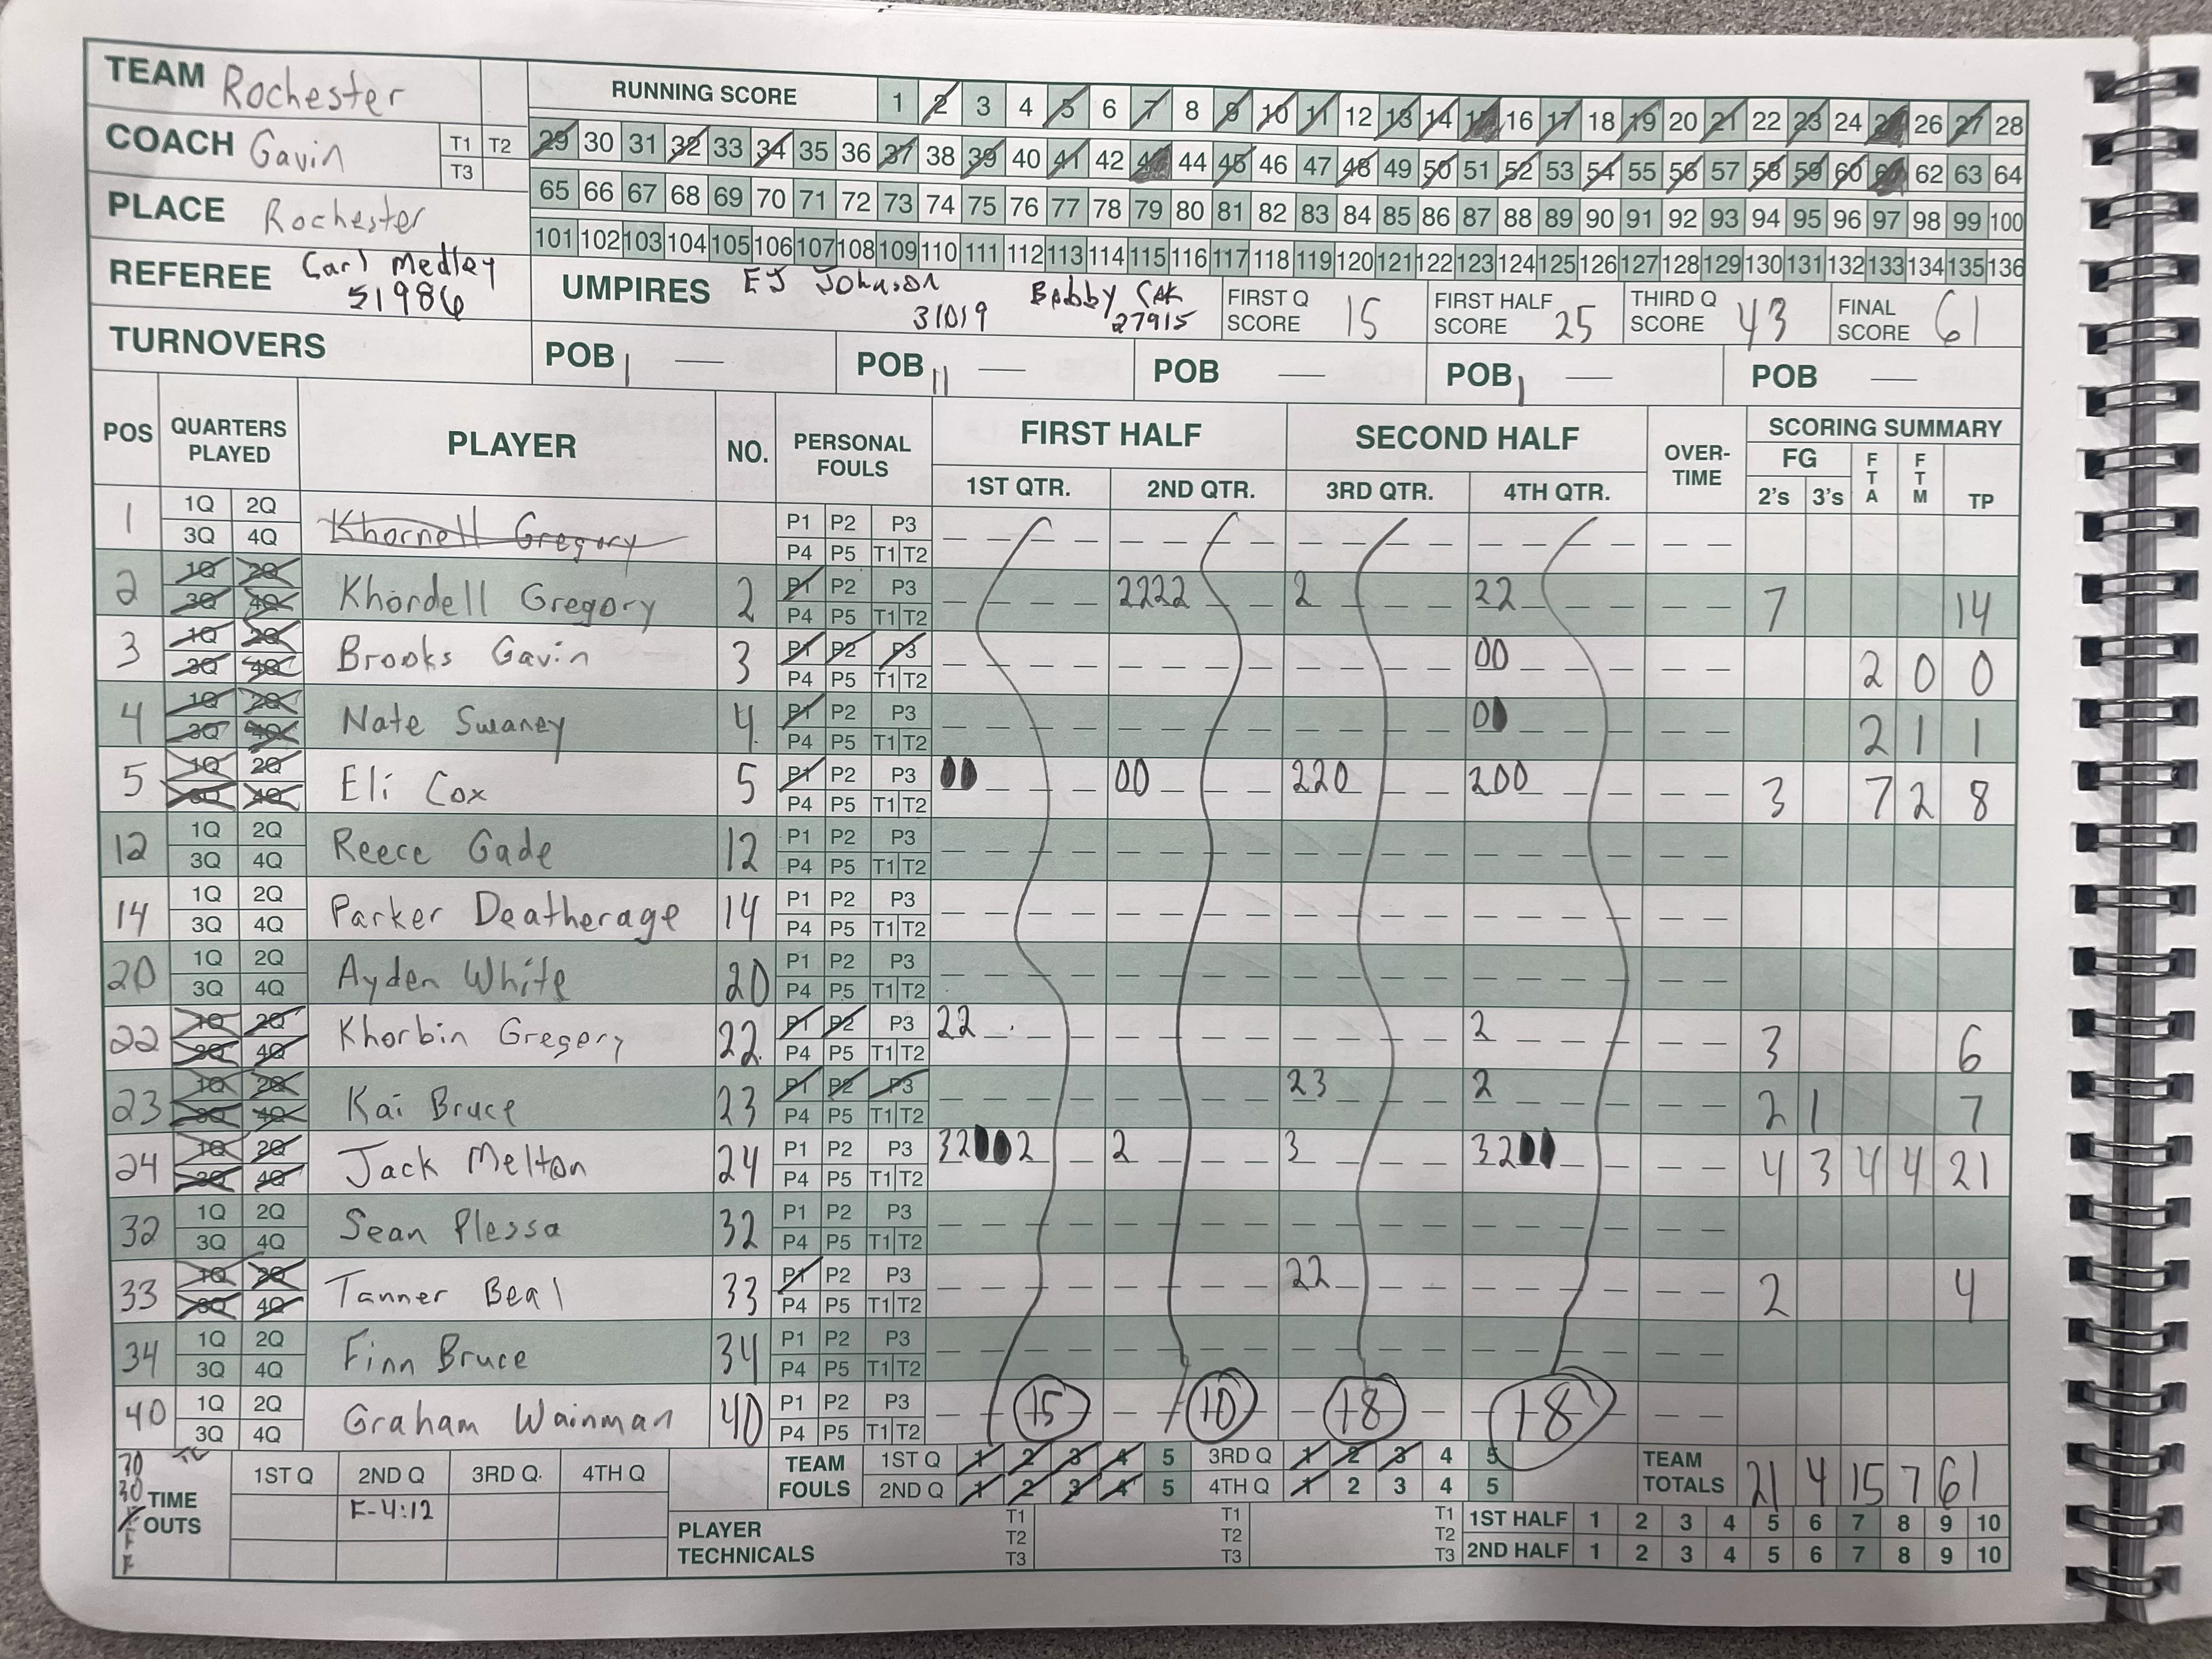 TEAM Rochester
RUNNING SCORE 1 2 3 4 5 6 7 8 9 10 11 12 13 14 15 16 17 18 19 20 21 22 23 24 25 26 27 28
COACH Gavin T1 T2 T3
29 30 31 32 33 34 35 36 37 38 39 40 41 42 43 44 45 46 47 48 49 50 51 52 53 54 55 56 57 58 59 60 61 62 63 64
PLACE Rochester
65 66 67 68 69 70 71 72 73 74 75 76 77 78 79 80 81 82 83 84 85 86 87 88 89 90 91 92 93 94 95 96 97 98 99 100
101 102 103 104 105 106 107 108 109 110 111 112 113 114 115 116 117 118 119 120 121 122 123 124 125 126 127 128 129 130 131 132 133 134 135 136
REFEREE Carl Medley 51986
UMPIRES EJ Johnson 31019 Bobby Cox 27915
FIRST Q SCORE 15 FIRST HALF SCORE 25 THIRD Q SCORE 43 FINAL SCORE 61
TURNOVERS POB POB POB POB POB
POS QUARTERS PLAYED PLAYER NO. PERSONAL FOULS FIRST HALF SECOND HALF OVER-TIME SCORING SUMMARY
1ST QTR. 2ND QTR. 3RD QTR. 4TH QTR. FG 2's 3's FTA FTM TP
1 1Q 2Q 3Q 4Q Khornell Gregory P1 P2 P3 P4 P5 T1 T2
2 1Q 2Q 3Q 4Q Khordell Gregory 2 P1 P2 P3 P4 P5 T1 T2 2222 2 22 7 14
3 1Q 2Q 3Q 4Q Brooks Gavin 3 P1 P2 P3 P4 P5 T1 T2 00 2 0 0
4 1Q 2Q 3Q 4Q Nate Swaney 4 P1 P2 P3 P4 P5 T1 T2 00 2 1 1
5 1Q 2Q 3Q 4Q Eli Cox 5 P1 P2 P3 P4 P5 T1 T2 00 00 220 200 3 7 2 8
12 1Q 2Q 3Q 4Q Reece Gade 12 P1 P2 P3 P4 P5 T1 T2
14 1Q 2Q 3Q 4Q Parker Deatherage 14 P1 P2 P3 P4 P5 T1 T2
20 1Q 2Q 3Q 4Q Ayden White 20 P1 P2 P3 P4 P5 T1 T2
22 1Q 2Q 3Q 4Q Khorbin Gregory 22 P1 P2 P3 P4 P5 T1 T2 22 2 3 6
23 1Q 2Q 3Q 4Q Kai Bruce 23 P1 P2 P3 P4 P5 T1 T2 23 2 2 1 7
24 1Q 2Q 3Q 4Q Jack Melton 24 P1 P2 P3 P4 P5 T1 T2 32002 2 3 3200 4 3 4 4 21
32 1Q 2Q 3Q 4Q Sean Plessa 32 P1 P2 P3 P4 P5 T1 T2
33 1Q 2Q 3Q 4Q Tanner Beal 33 P1 P2 P3 P4 P5 T1 T2 22 2 4
34 1Q 2Q 3Q 4Q Finn Bruce 34 P1 P2 P3 P4 P5 T1 T2
40 1Q 2Q 3Q 4Q Graham Wainman 40 P1 P2 P3 P4 P5 T1 T2 15 10 18 18
30 30 F F F TIME OUTS 1ST Q 2ND Q 3RD Q. 4TH Q
F-4:12
TEAM FOULS 1ST Q 1 2 3 4 5 3RD Q 1 2 3 4 5
2ND Q 1 2 3 4 5 4TH Q 1 2 3 4 5
TEAM TOTALS 21 4 15 7 61
PLAYER TECHNICALS T1 T2 T3 T1 T2 T3 T1 T2 T3
1ST HALF 1 2 3 4 5 6 7 8 9 10
2ND HALF 1 2 3 4 5 6 7 8 9 10